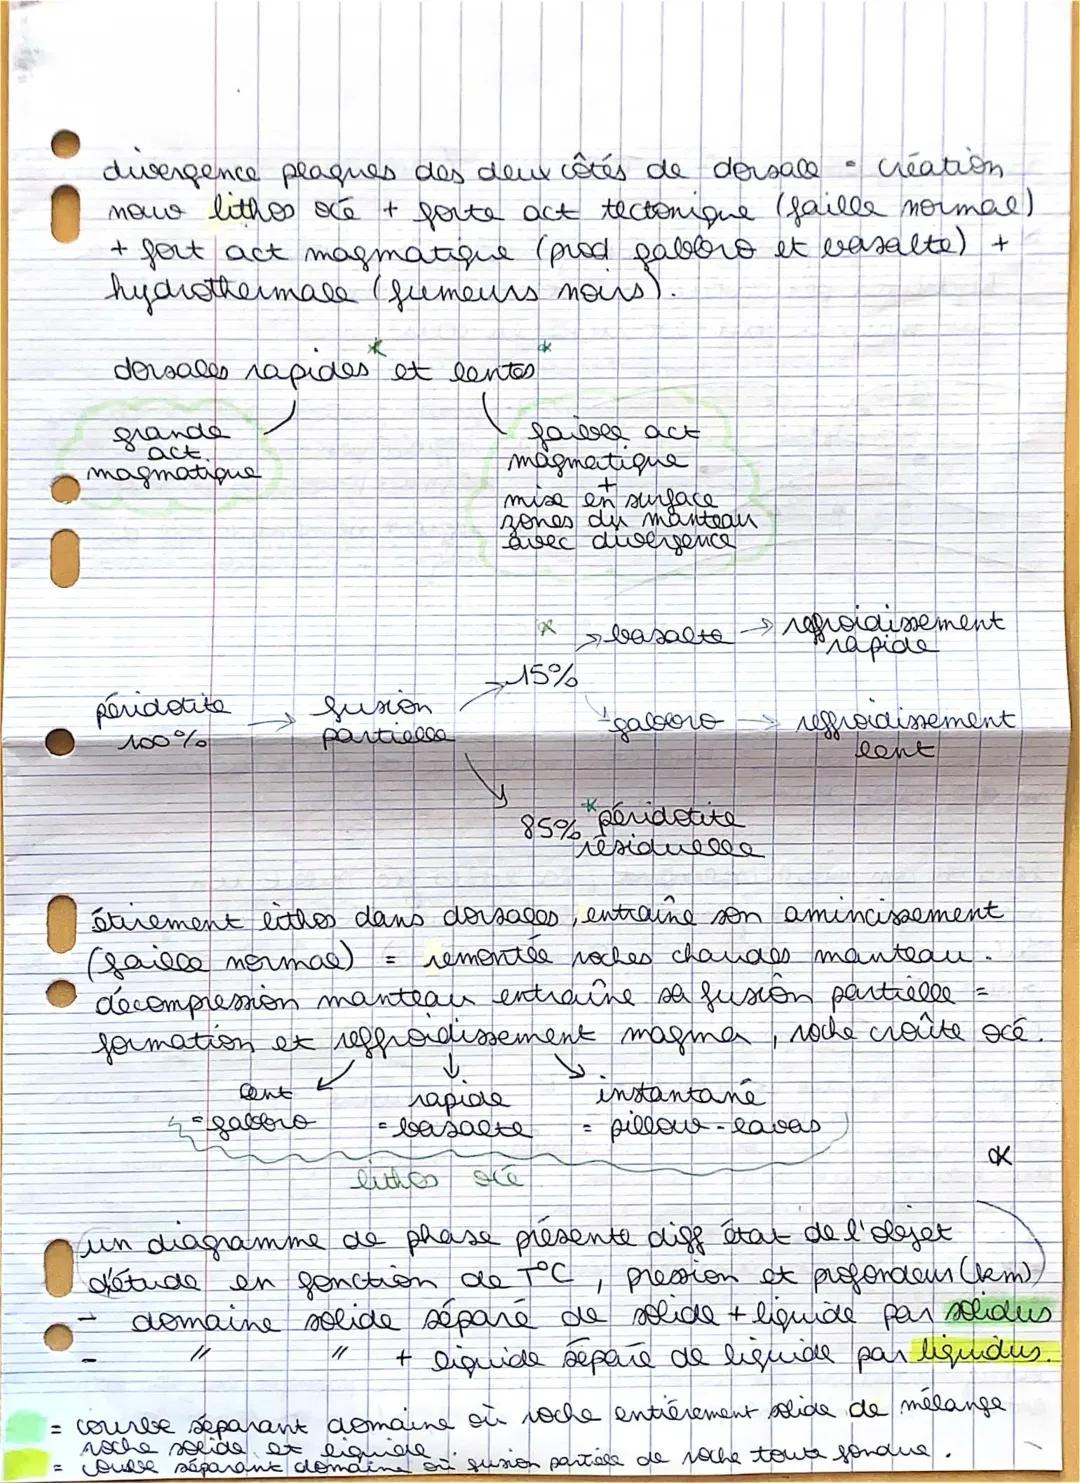 divergence plaques des deux côtés de dorsale = création
nouv lithos océ + forte act tectonique (faille normal)
+ fort act magmatique (prod gabbro et basalte) +
hydrothermale (fumeurs noirs).
dorsales rapides* et lentes*
grande
act.
magmatique
faible act
magmatique
+
mise en surface
zones du manteau
avec divergence
* basalte → reffroidissement
rapide
15%
péridotite → fusion
100% partielle
gabbro → reffroidissement
lent
85% *péridotite
résiduelle
étirement lithos dans dorsales, entraîne son amincissement
(faille normal) = remontée roches chaudes manteau.
décompression manteau entraîne sa fusion partielle =
formation et reffroidissement magma, roche croûte océ.
lent rapide instantané
= gabbro = basalte = pillow-lavas
lithos océ
*
un diagramme de phase présente diff état de l'objet
d'étude en fonction de T°C, pression et profondeur (km)
- domaine solide séparé de solide + liquide par solidus
- " " + liquide séparé de liquide par liquidus.
= courbe séparant domaine où roche entièrement solide de mélange
roche solide et liquide.
= courbe séparant domaine où fusion partielle de roche toute fondue.